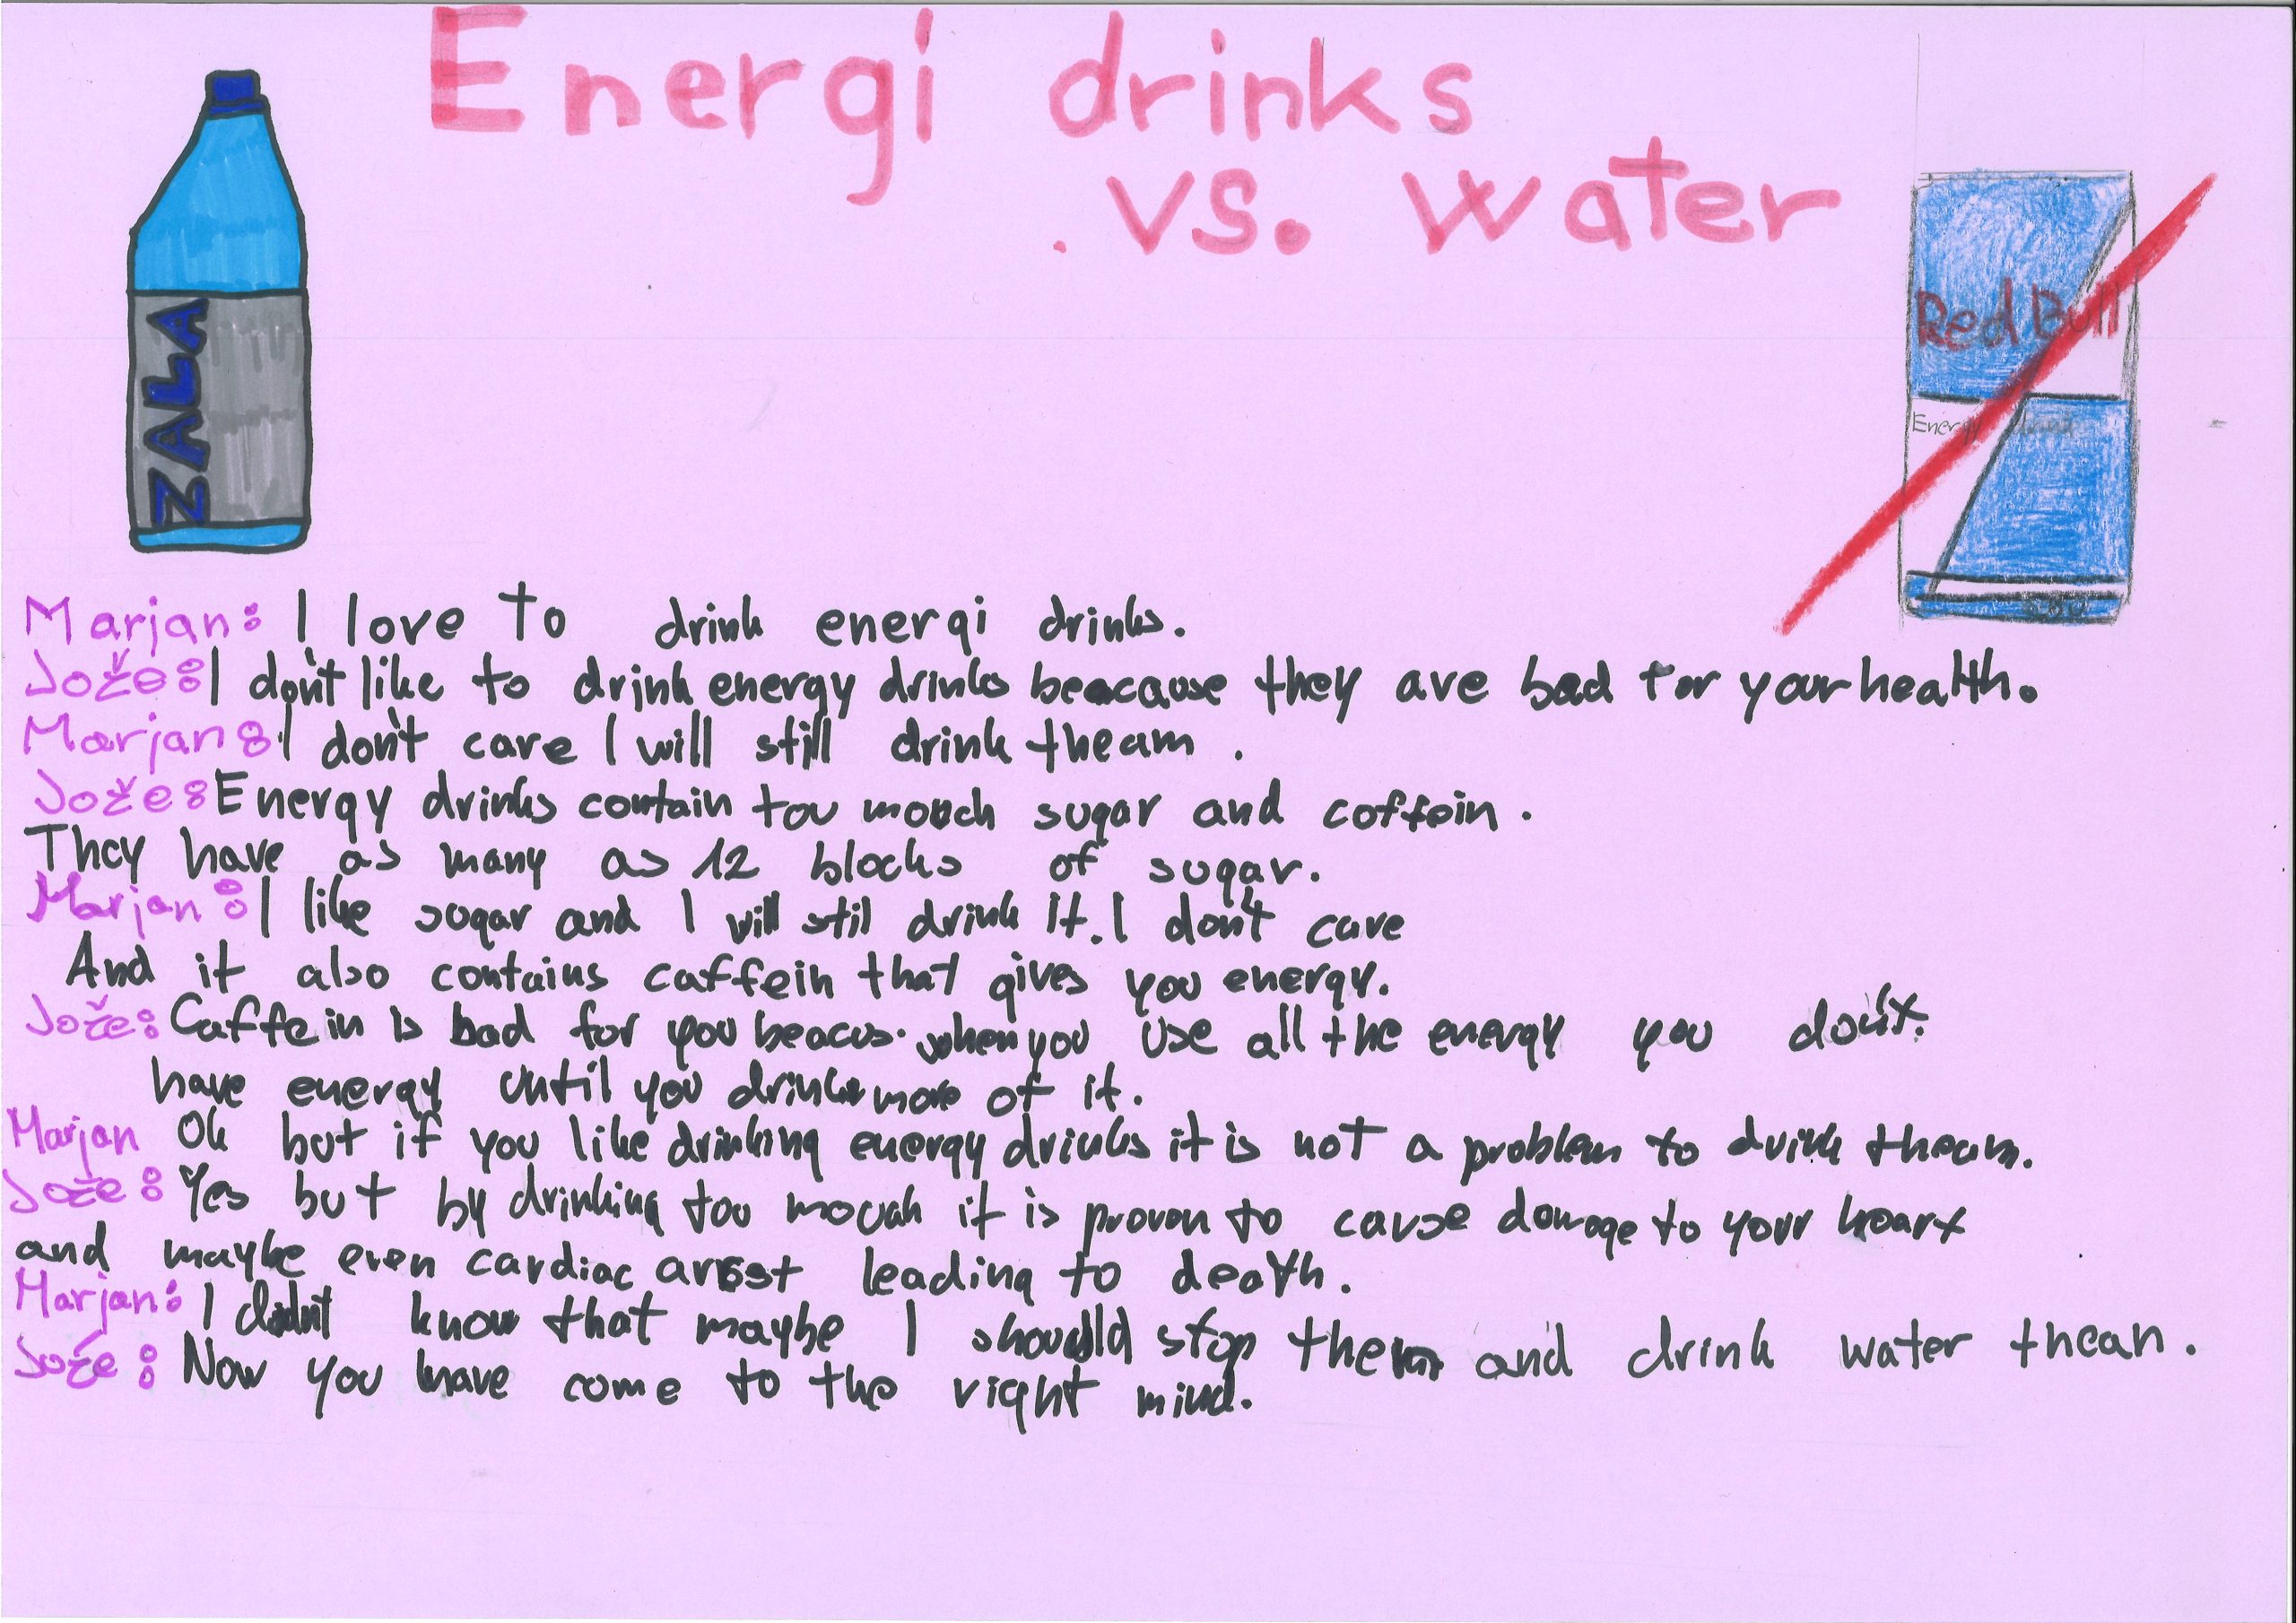 Energi drinks
vs. water
ZALA
Red Bull
Energy
Marjan: I love to drink energi drinks.
Jože: I don't like to drink energy drinks beacause they are bad for your health.
Marjan: I don't care I will still drink theam.
Jože: Energy drinks contain tou mouch sugar and coffein.
They have as many as 12 blocks of sugar.
Marjan: I like sugar and I will stil drink it. I don't care
And it also contains caffein that gives you energy.
Jože: Caffein is bad for you beacus when you use all the energy you don't
have energy until you drink more of it.
Marjan Ok but if you like drinking energy drinks it is not a problem to drink theam.
Jože: Yes but by drinking tou mouch it is proven to cause damage to your heart
and maybe even cardiac arest leading to death.
Marjan: I didn't know that maybe I should stop them and drink water thean.
Jože: Now you have come to the right mind.